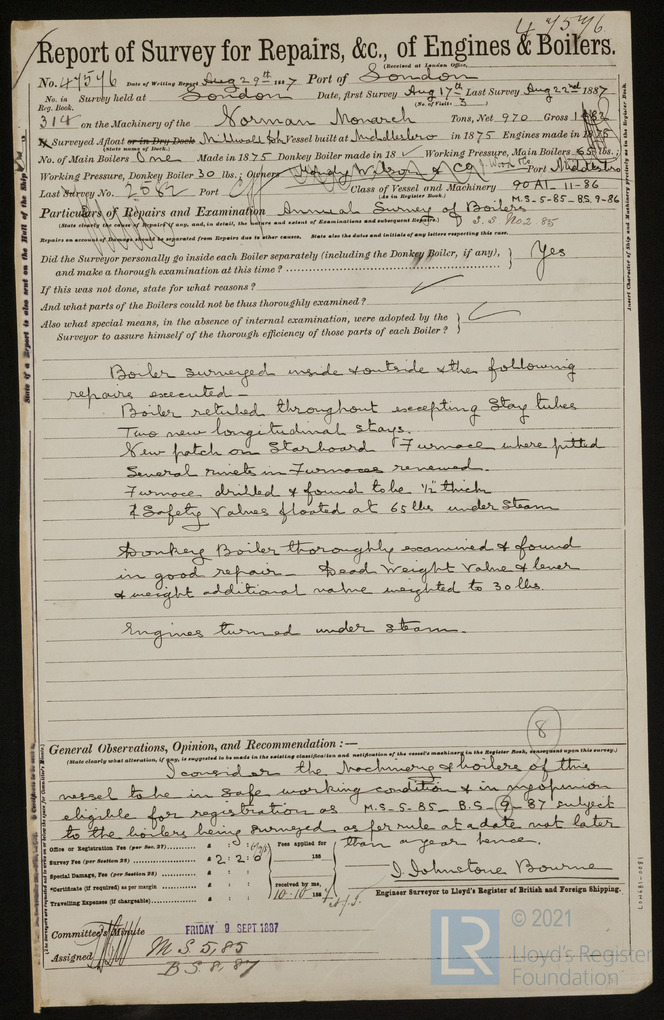 47576
Report of Survey for Repairs, &c., of Engines & Boilers.
(Received at London Office,
No. 47576 Date of Writing Report Aug 29th 1887 Port of London
No. in Reg. Book. Survey held at London Date, first Survey Aug 17th Last Survey Aug 22nd 1887
(No. of Visits 3)
314 on the Machinery of the Norman Monarch Tons, Net 970 Gross
Surveyed Afloat or in Dry Dock Millwall Vessel built at Middlesbro in 1875 Engines made in 1875
(State name of Dock.)
No. of Main Boilers One Made in 1875 Donkey Boiler made in 18 Working Pressure, Main Boilers 65 lbs.
Working Pressure, Donkey Boiler 30 lbs.; Owners Wilson & Co Port Middlesbro
Last Survey No. 2582 Port Class of Vessel and Machinery 90A1 11-86
(As in Register Book.) M.S-5-85-BS.9-86
Particulars of Repairs and Examination Annual Survey of Boilers
S.S No2 85
(State clearly the cause of Repairs if any, and, in detail, the nature and extent of Examinations and subsequent Repairs.)
Repairs on account of Damage should be separated from Repairs due to other causes. State also the dates and initials of any letters respecting this case.
Did the Surveyor personally go inside each Boiler separately (including the Donkey Boiler, if any), and make a thorough examination at this time? Yes
If this was not done, state for what reasons?
And what parts of the Boilers could not be thus thoroughly examined?
Also what special means, in the absence of internal examination, were adopted by the
Surveyor to assure himself of the thorough efficiency of those parts of each Boiler?
Boiler surveyed inside & outside & the following
repairs executed -
Boiler retubed throughout excepting Stay tubes
Two new longitudinal stays.
New patch on Starboard Furnace where pitted
Several rivets in Furnaces renewed.
Furnace drilled & found to be ½" thick
& Safety Valves floated at 65 lbs under Steam
Donkey Boiler thoroughly examined & found
in good repair - Dead Weight Valve & lever
& weight additional valve weighted to 30 lbs.
Engines turned under steam.
8
General Observations, Opinion, and Recommendation :—
(State clearly what alteration, if any, is suggested to be made in the existing classification and notification of the vessel's machinery in the Register Book, consequent upon this survey.)
I consider the Machinery & boilers of this
vessel to be in safe working condition & in my opinion
eligible for registration as M.S-5-85 - B.S-9-87 subject
to the boilers being surveyed as per rule at a date not later
than a year hence.
Office or Registration Fee (per Sec. 27) £ : :
Survey Fee (per Section 28) £ 2 : 2 : 0
Special Damage, Fee (per Section 28) £ : :
Certificate (if required) as per margin £ : :
Travelling Expenses (if chargeable) £ : :
Fees applied for
188
received by me,
10.10 188
J. Johnstone Bourne
Engineer Surveyor to Lloyd's Register of British and Foreign Shipping.
Committee's Minute FRIDAY 9 SEPT 1887
Assigned M S 5,85
B S. 8, 87
LR
© 2021
Lloyd's Register
Foundation